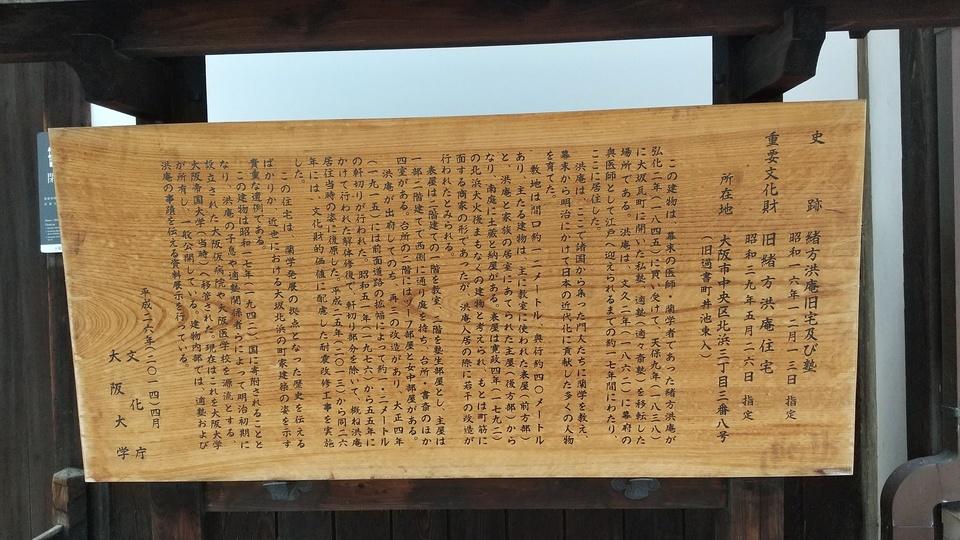 史跡 緒方洪庵旧宅及び塾
昭和一六年一二月一三日 指定
重要文化財 旧緒方洪庵住宅
昭和三九年五月二六日 指定
所在地 大阪市中央区北浜三丁目三番八号
(旧過書町井池東入)
この建物は、幕末の医師・蘭学者であった緒方洪庵が
弘化二年(一八四五)に買い受けて、天保九年(一八三八)
に大坂瓦町に開いた私塾、適塾(適々斎塾)を移転した
場所である。洪庵は、文久二年(一八六二)に幕府の
奥医師として江戸へ迎えられるまでの約一七年間にわたり、
ここに居住した。
洪庵は、ここで諸国から集った門人たちに蘭学を教え、
幕末から明治にかけて日本の近代化に貢献した多くの人物
を育てた。
敷地は間口約一二メートル、奥行約四〇メートル
あり、主たる建物は、主に教室に使われた表屋(前方部)
と、洪庵と家族の居室にあてられた主屋(後方部)から
なり、南庭に土蔵と納屋がある。表屋は寛政四年(一七九二)
の北浜大火後まもなくの建物と考えられ、もとは町筋に
面する商家の形であったが、洪庵入居の際に若干の改造が
行われたとみられる。
表屋は二階建ての一階を教室、二階を塾生部屋とし、主屋は
一部二階建てで西側に通り庭を持ち、台所・書斎のほか
四室がある。台所の二階にはヅーフ部屋と女中部屋がある。
洪庵が出府してのち、再三の改造があり、大正四年
(一九一五)には前面道路の拡幅によって約一・二メートル
の軒切りが行われた。昭和五一年(一九七六)から五五年に
かけて行われた解体修復で、軒切り部分を除いて、概ね洪庵
居住当時の姿に復原した。平成二五年(二〇一三)から同二六
年には、文化財的価値に配慮した耐震改修工事を実施
した。
この住宅は、蘭学発展の拠点となった歴史を伝える
ばかりか、近世における大坂北浜の町家建築の姿を示す
貴重な遺例である。
この建物は昭和一七年(一九四二)、国に寄附されることと
なり、洪庵の子息や適塾関係者らによって明治初期に
設立された大阪仮病院や大阪医学校を源流とする
大阪帝国大学(当時)へ移管された。現在はこれを大阪大学
が所有し、一般公開している。建物内部では、適塾および
洪庵の事蹟を伝える資料展示を行っている。
平成二六年(二〇一四)四月
文化庁
大阪大学